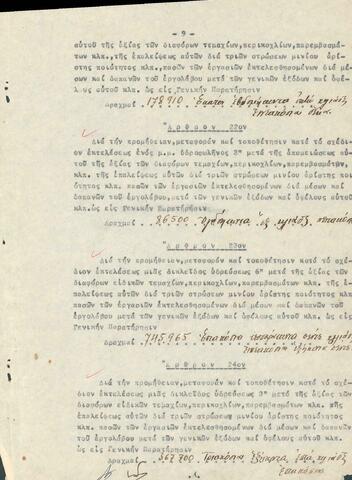 - 9 -
αὐτοῦ τῆς ἀξίας τῶν διαφόρων τεμαχίων, περικοχλίων, παρεμβασμά-
των κλπ., τῆς ἐπαλείψεως αὐτῶν διά τριῶν στρώσεων μινίου ἀρί-
στης ποιότητος κλπ., πασῶν τῶν ἐργασιῶν ἐκτελεσθησομένων διά μέσων
καί δαπανῶν τοῦ ἐργολάβου μετά τῶν γενικῶν ἐξόδων καί ὀφέ-
λους αὐτοῦ κλπ. ὡς εἰς Γενικήν Παρατήρησιν
Δραχμαί 178.910 Ἑκατόν ἑβδομήκοντα ὀκτώ χιλιάδες
ἐννιακόσιαι δέκα.
Ἄρθρον 22ον
Διά τήν προμήθειαν, μεταφοράν καί τοποθέτησιν κατά τό σχέδιον
ἐκτελέσεως ἑνός μ.μ. ὑδροσωλῆνος 3" μετά τῆς ἀπομειώσεως αὐτοῦ
τῆς ἀξίας τῶν διαφόρων τεμαχίων, περικοχλίων, παρεμβασμάτων κλπ.
τῆς ἐπαλείψεως αὐτῶν διά τριῶν στρώσεων μινίου ἀρίστης ποι-
ότητος κλπ. πασῶν τῶν ἐργασιῶν ἐκτελεσθησομένων διά μέσων καί
δαπανῶν τοῦ ἐργολάβου μετά τῶν γενικῶν ἐξόδων καί ὀφέλους αὐτοῦ
κλπ. ὡς εἰς Γενικήν Παρατήρησιν
Δραχμαί 86.500 Ὀγδοήκοντα ἕξ χιλιάδες πεντακόσιαι
Ἄρθρον 23ον
Διά τήν προμήθειαν, μεταφοράν καί τοποθέτησιν κατά τό σχέ-
διον ἐκτελέσεως μιᾶς δικλεῖδος ὑδρεύσεως 6" μετά τῆς ἀξίας τῶν
διαφόρων εἰδικῶν τεμαχίων, περικοχλίων, παρεμβασμάτων κλπ. τῆς ἐ-
παλείψεως αὐτῶν διά τριῶν στρώσεων μινίου ἀρίστης ποιότητος κλπ.
πασῶν τῶν ἐργασιῶν ἐκτελεσθησομένων διά μέσων καί δαπανῶν τοῦ
ἐργολάβου μετά τῶν γενικῶν ἐξόδων καί ὀφέλους αὐτοῦ κλπ. ὡς εἰς
Γενικήν Παρατήρησιν
Δραχμαί 745.965 Ἑπτακόσιαι τεσσαράκοντα πέντε χιλιάδες
ἐννιακόσιαι ἑξήκοντα πέντε
Ἄρθρον 24ον
Διά τήν προμήθειαν, μεταφοράν καί τοποθέτησιν κατά τό σχέ-
διον ἐκτελέσεως μιᾶς δικλεῖδος ὑδρεύσεως 3" μετά τῆς ἀξίας τῶν
διαφόρων εἰδικῶν τεμαχίων, περικοχλίων, παρεμβασμάτων κλπ. τῆς
ἐπαλείψεως αὐτῶν διά τριῶν στρώσεων μινίου ἀρίστης ποιότητος
κλπ. πασῶν τῶν ἐργασιῶν ἐκτελεσθησομένων διά μέσων καί δαπανῶν
τοῦ ἐργολάβου μετά τῶν γενικῶν ἐξόδων καί ὀφέλους αὐτοῦ κλπ.
ὡς εἰς Γενικήν Παρατήρησιν
Δραχμαί 367.700 Τριακόσιαι ἑξήκοντα ἑπτά χιλιάδες
ἑπτακόσιαι